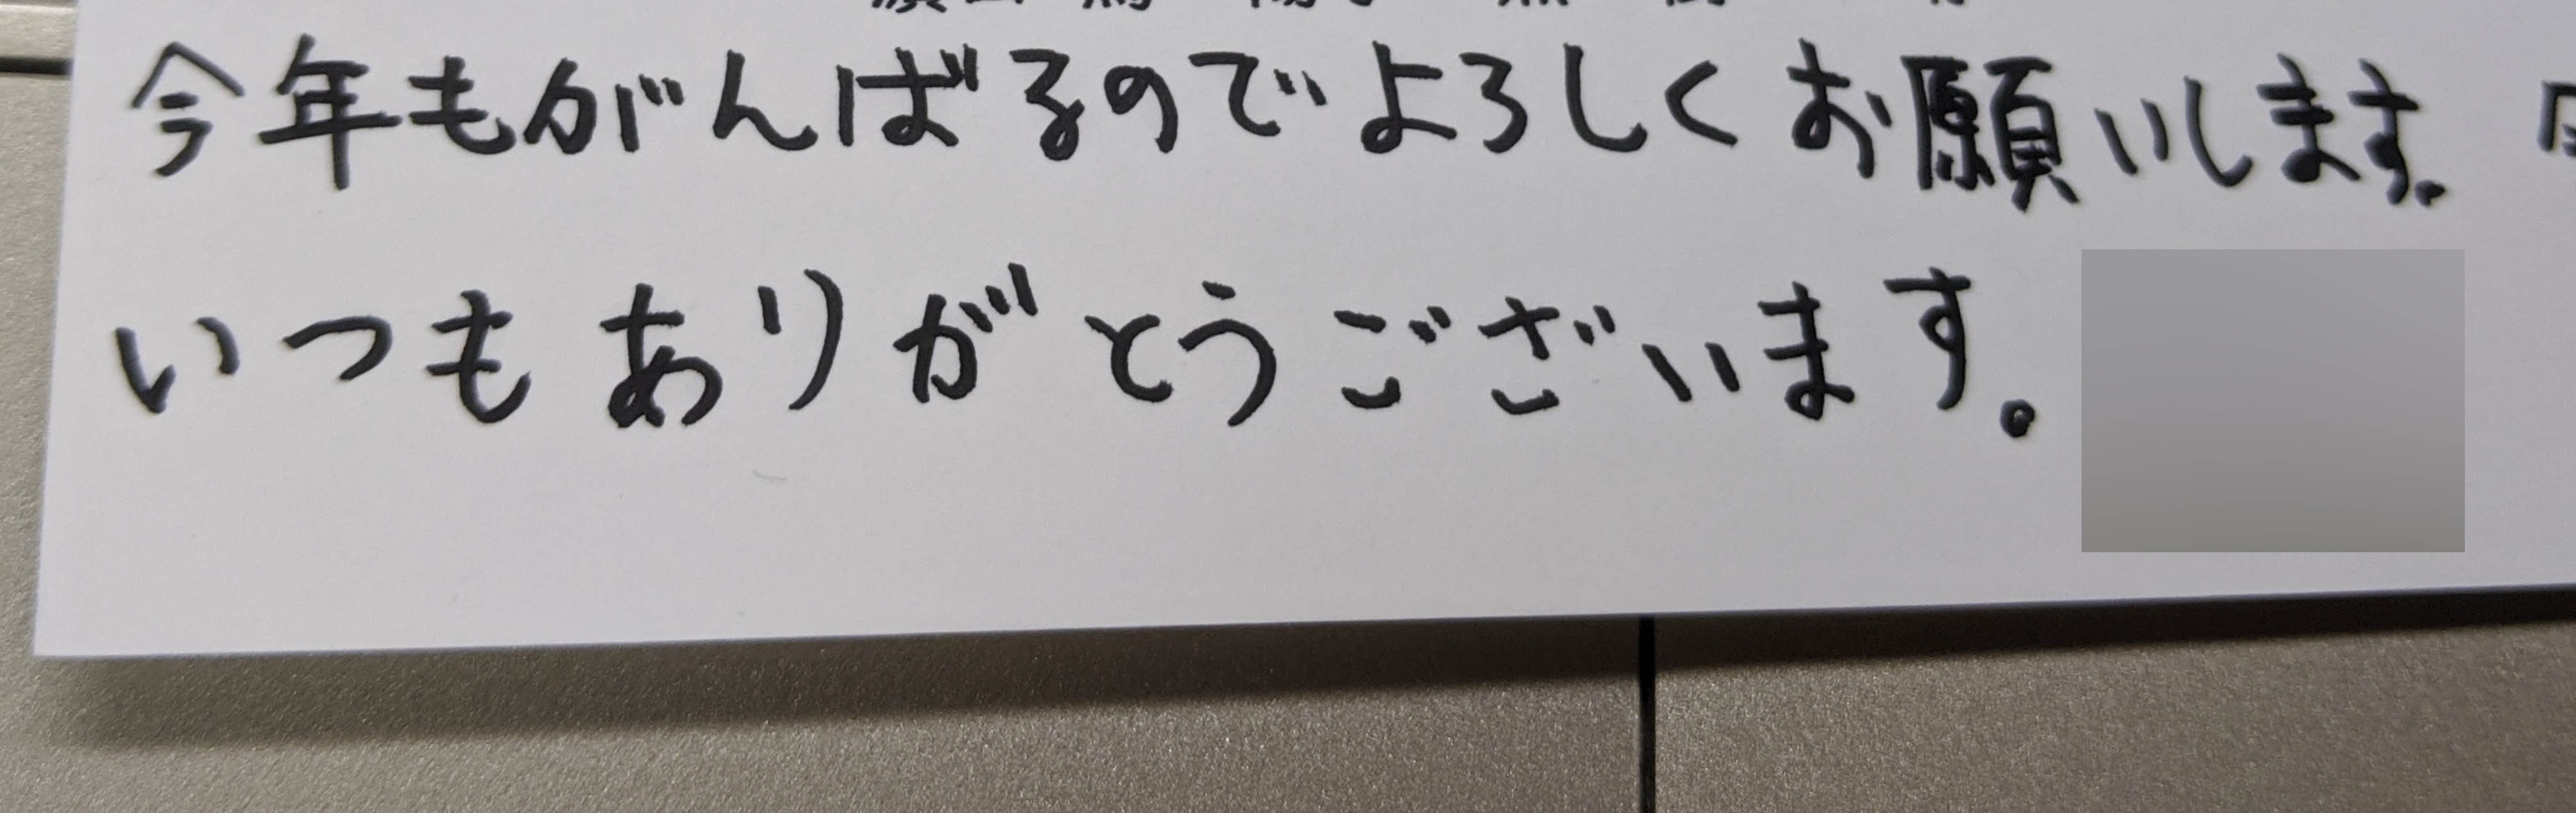 今年もがんばるのでよろしくお願いします。
いつもありがとうございます。